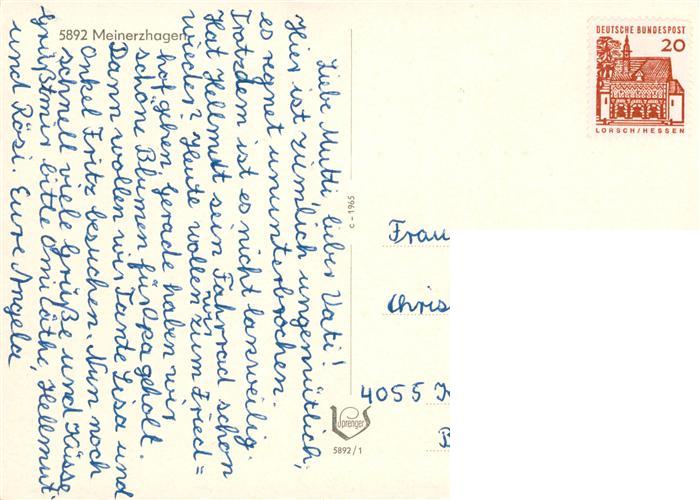 5892 Meinerzhagen
Liebe Mutti, lieber Vati!
Hier ist zümlich ungemütlich,
es regnet ununterbrochen.
Trotzdem ist es nicht lanweilig.
Hat Hellmut sein Fahrrad schon
wieder? Heute wollen wir zum Fried=
hof gehen, gerade haben wir
schöne Blumen für Opa geholt.
Dann wollen wir Tante Lisa und
Onkel Fritz besuchen. Nun noch
schnell viele Grüße und Küsse
Grüßt mir bitte Omi Käthi, Hellmut,
und Rosi. Eure Angela
c - 1965
Sprenger
5892/1
DEUTSCHE BUNDESPOST
20
LORSCH/HESSEN
Frau
Chris
4055 K
B